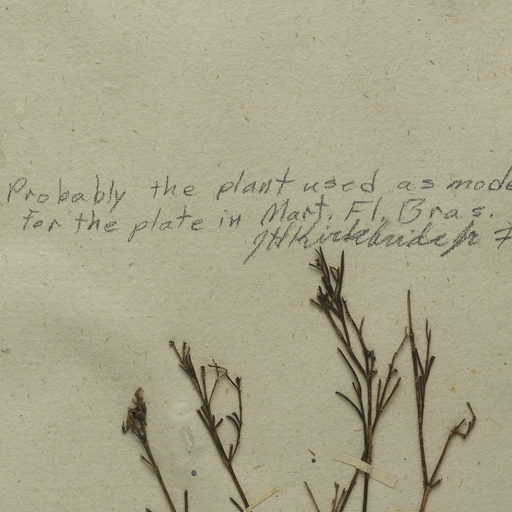 Probably the plant used as mode
for the plate in Mart. Fl. Bras.
JHKirkbride Jr 7